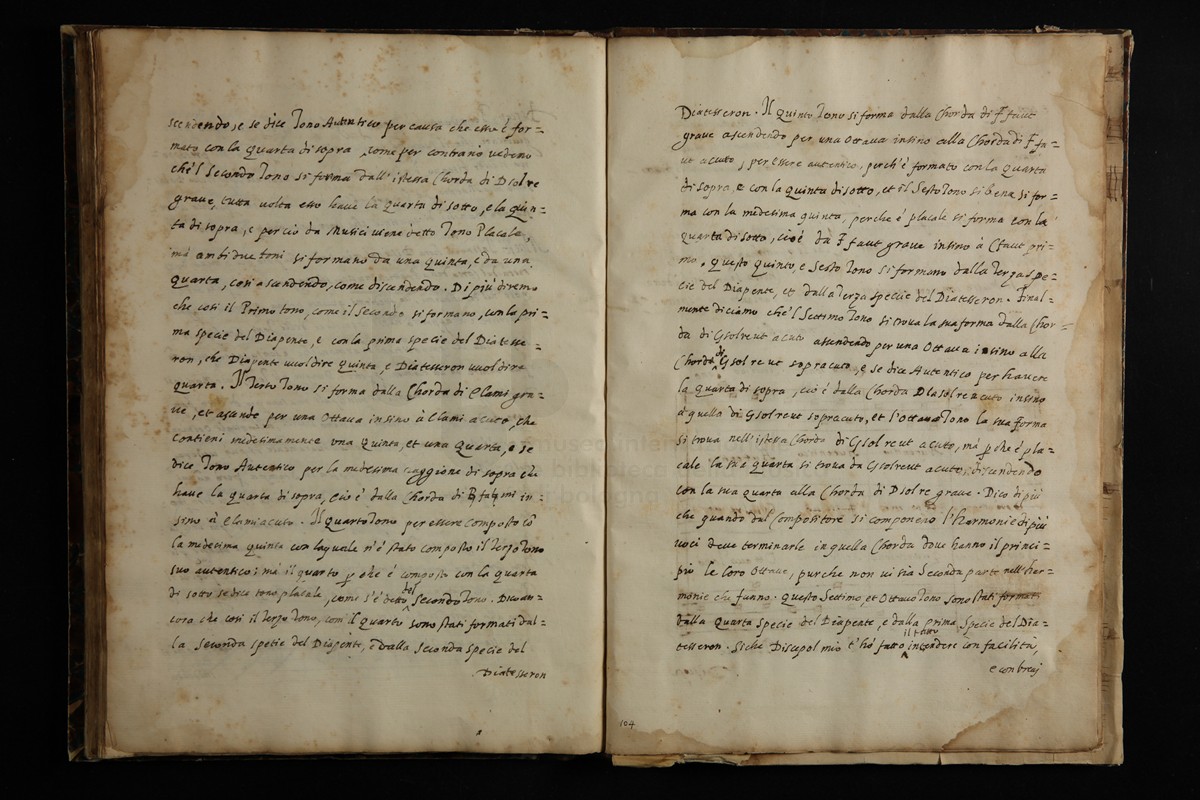 scendendo, e se dice Tono Autentico per causa che esso é for=
mato con la quarta di sopra, come per contrario vedemo
che'l Secondo Tono si forma dall'istessa Chorda di D sol re
grave, tutta volta esso have la quarta di sotto, e la quin=
ta di sopra, e perciò da Musici viene detto Tono Placale,
mà ambi due toni si formano da una quinta, e da una
quarta, così ascendendo, come discendendo. Di più diremo
che così il Primo tono, come il Secondo si formano, con la pri=
ma specie del Diapente, e con la prima specie del Diatesse=
ron, che Diapente vuol dire quinta, e Diatesseron vuol dire
quarta. Il Terzo Tono si forma dalla Chorda di Elami gra=
ve, et ascende per una Ottava insino à Elami acuto, che
contieni medesimamente una quinta, et una quarta, e se
dice Tono Autentico per la medesima raggione di sopra che
have la quarta di sopra, cioè dalla Chorda di B fa ♮ mi in=
sino à Elami acuto. Il quarto Tono per essere composto cò
la medesima quinta con la quale n'è stato composto il Terzo Tono
suo autentico; mà il quarto p che è composto con la quarta
di sotto se dice tono placale, come s'è detto del Secondo Tono. Dico an=
cora che così il Terzo Tono, com il quarto sono stati formati dal=
la Seconda spetie del Diapente, e dalla Seconda Specie del
Diatesseron
Diatesseron. Il quinto Tono si forma dalla Chorda di F faut
grave ascendendo per una Ottava insino alla Chorda di F fa=
ut acuto, per essere autentico, perch'è formato con la quarta
di sopra, e con la quinta di sotto, et il Sesto Tono si bene si for=
ma con la medesima quinta, perche é placale si forma con la
quarta di sotto, cioè da F faut grave insino à C faut pri=
mo. Questo quinto, e Sesto Tono si formano dalla Terza spe=
cie del Diapente, et dalla Terza specie del Diatesseron. Final=
mente diciamo che'l Settimo Tono si trova la sua forma dalla Chor=
da di G solreut acuto ascendendo per una Ottava insino alla
Chorda di G solreut sopracuto, e se dice Autentico per havere
la quarta di sopra, cioè dalla Chorda D la sol re acuto insino
à quello di G solreut sopracuto, et l'ottavo Tono la sua forma
si trova nell'istessa Chorda di G sol reut acuto, mà p che è pla=
cale la sua quarta si trova da G solreut acuto, discendendo
con la sua quarta alla Chorda di D sol re grave. Dico di più
che quando dal Compositore si componeno l'Harmonie di più
voci deve terminarle in quella Chorda dove hanno il princi=
pio le loro Ottave, purche non vi sia Seconda parte nell'her=
monie che fanno. Questo Settimo, et Ottavo Tono sono stati formati
dalla quarta specie del Diapente, e dalla prima Specie del Dia=
tesseron. Siche Discepol mio t'hò fatto intendere con facilità,
e con brevi
104